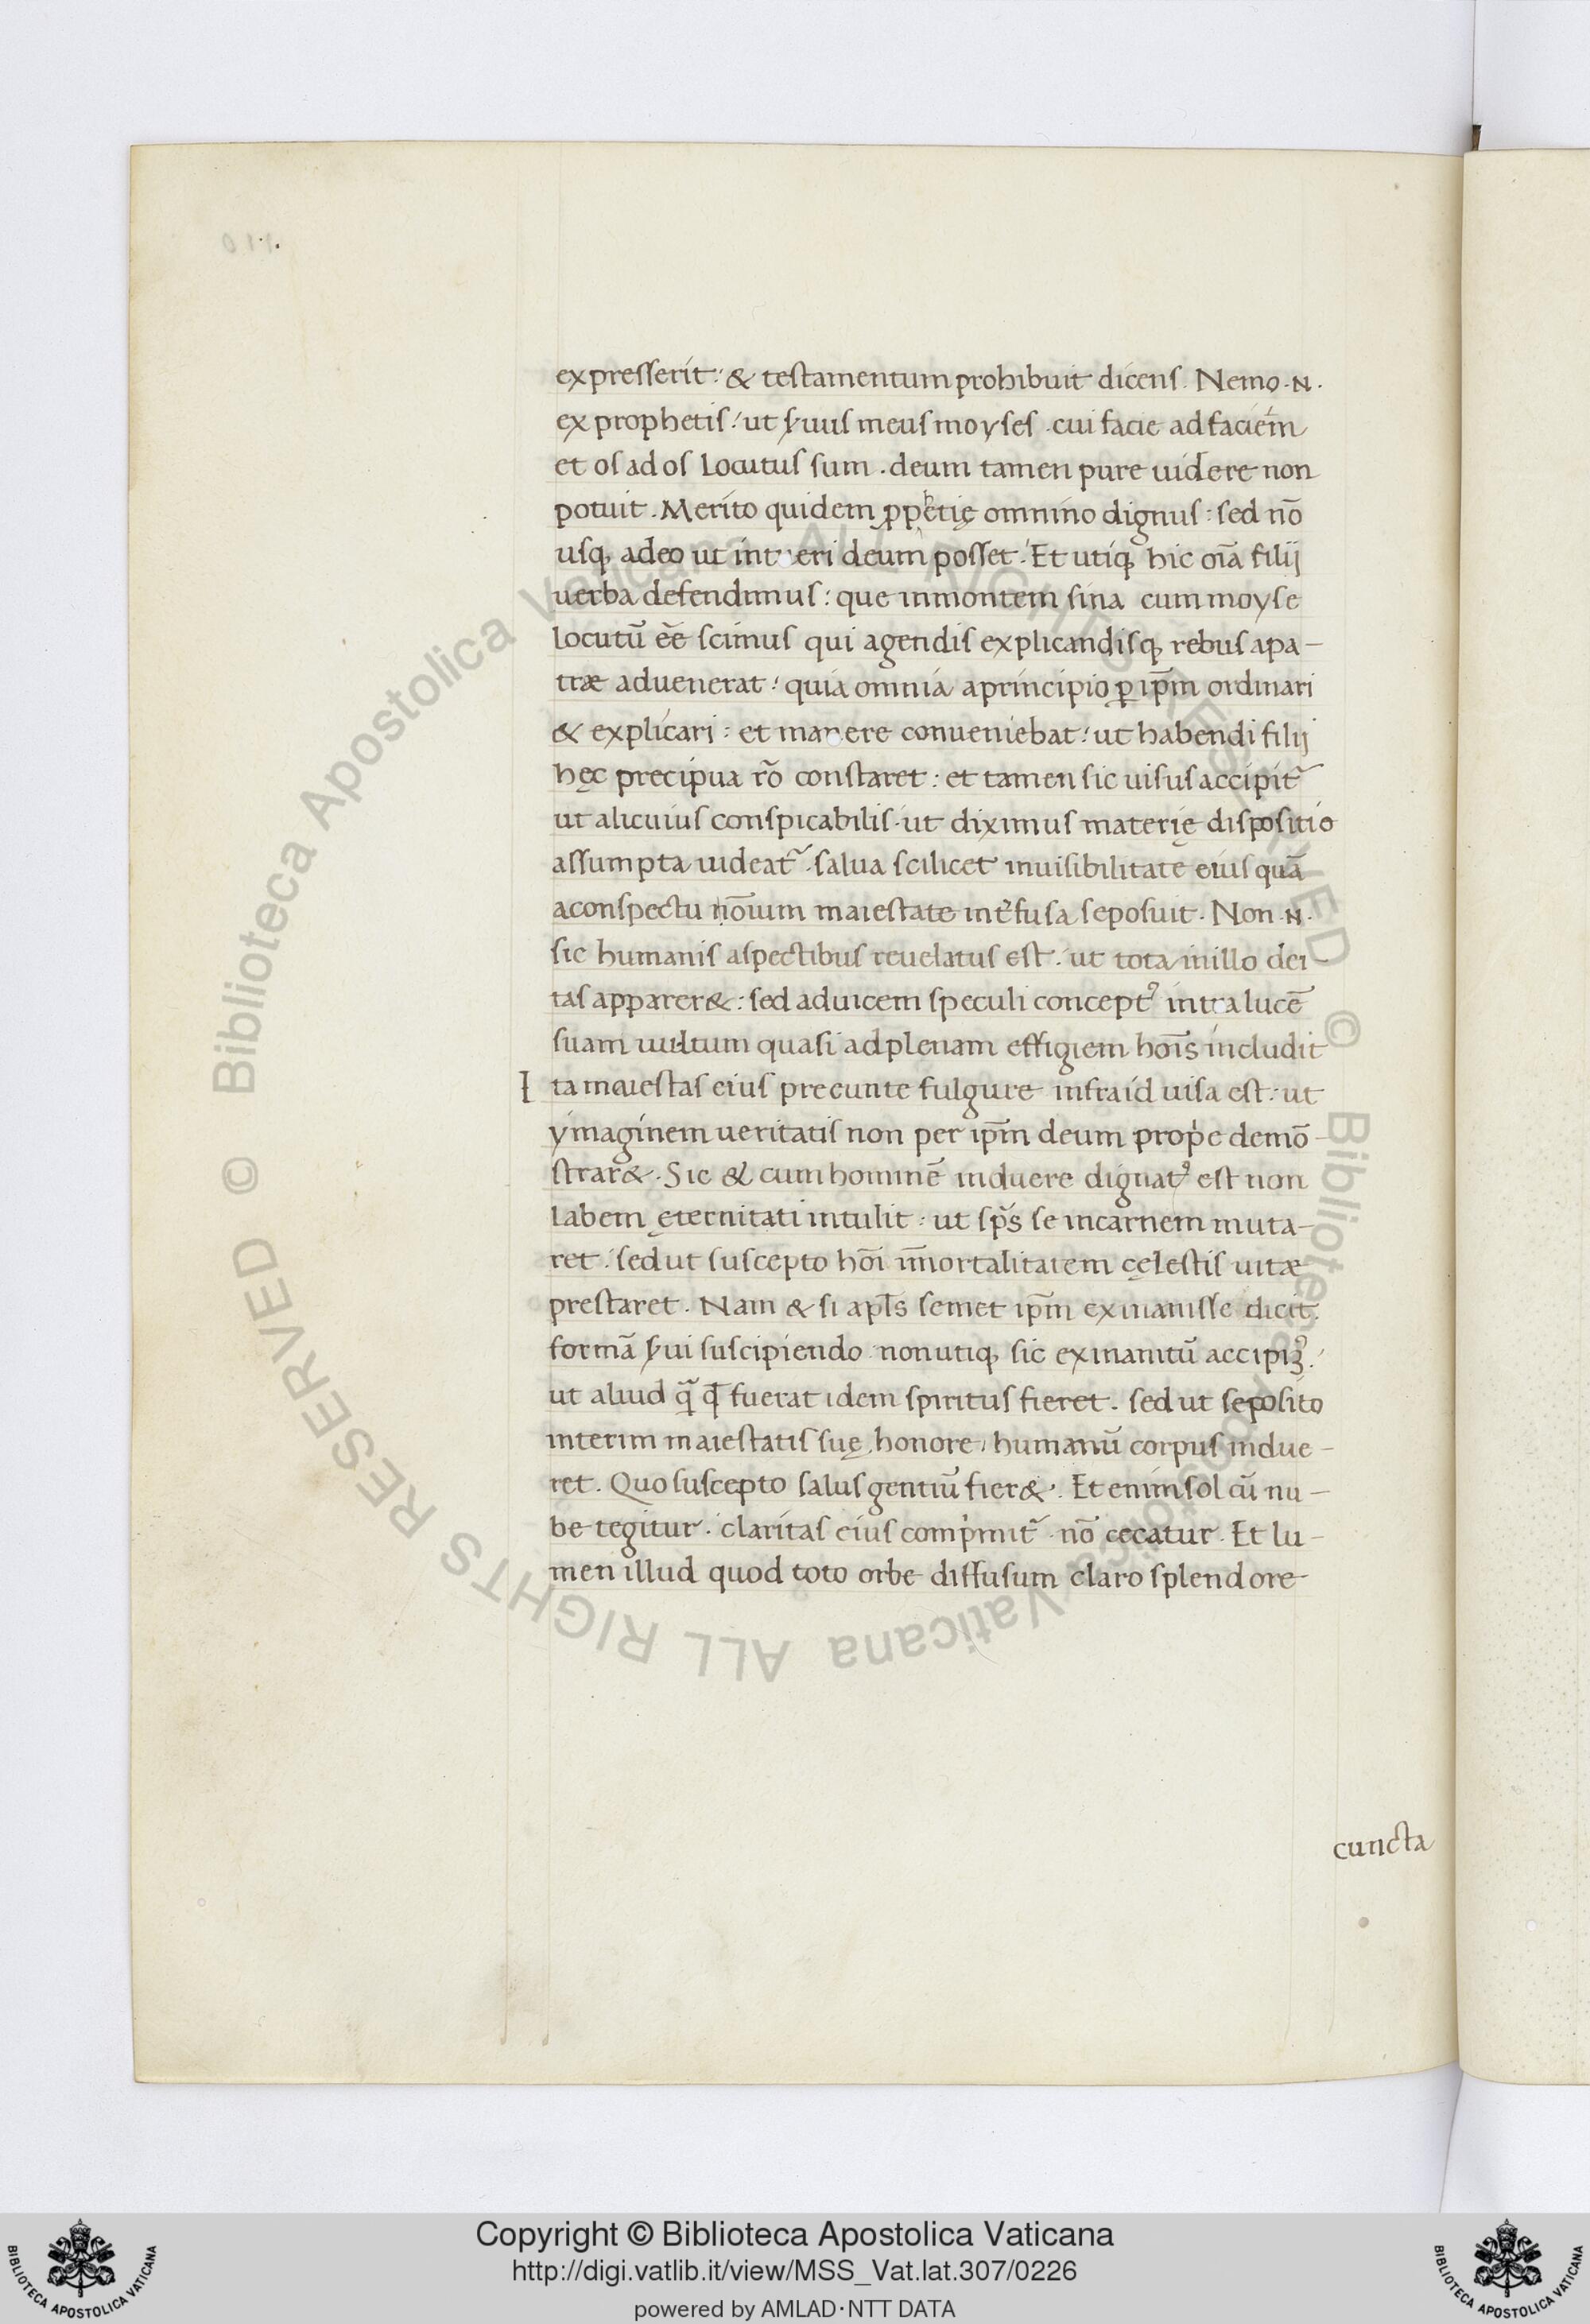 expresserit: & testamentum prohibuit dicens. Nemo .N.
ex prophetis: ut ẜuus meus moyses . cui facie ad faciem
et os ad os locutus sum . deum tamen pure uidere non
potuit . Merito quidem ꝓphetię omnino dignus : sed nō
usq; adeo ut intueri deum posset : Et utiq; hic oīa filij
uerba defendimus : que inmontem sina cum moyse
locutū eē scimus qui agendis explicandisq; rebus apa-
træ aduenerat : quia omnia aprincipio ꝑ ip̄m ordinari
& explicari : et manere conueniebat : ut habendi filij
hęc precipua rō constaret : et tamen sic uisus accipit᷑
ut alicuius conspicabilis . ut diximus materię dispositio
assumpta uideat᷑ . salua scilicet inuisibilitate eius quā
aconspectu hōium maiestate int̄fusa seposuit . Non .N.
sic humanis aspectibus reuelatus est : ut tota inillo dei
tas apparer& : sed aduicem speculi concept᾽ intra lucē
suam uultum quasi adplenam effigiem hoīs includit
I ta maiestas eius preeunte fulgure infraid uisa est : ut
ymaginem ueritatis non per ip̄m deum prope demō-
strar& . Sic & cum hominē induere dignat᾽ est non
labem ęternitati intulit : ut sp̄s se incarnem muta-
ret : sed ut suscepto hōi īmortalitatem cęlestis uitæ
prestaret . Nam & si apl̄s semet ip̄m exinanisse dicit .
formā ẜui suscipiendo . non utiq; sic exinanitū accipiꝫ᾽ :
ut aliud q̄ ꝙ fuerat idem spiritus fieret . sed ut seposito
interim maiestatis suę honore , humanū corpus indue-
ret . Quo suscepto salus gentiū fier& . Et enim sol cū nu-
be tegitur . claritas eius comprimit᷑ . nō cecatur . Et lu-
men illud quod toto orbe diffusum claro splendore
cuncta
© Biblioteca Apostolica Vaticana ALL RIGHTS RESERVED © Biblioteca Apostolica Vaticana ALL RIGHTS RESERVED
Copyright © Biblioteca Apostolica Vaticana
http://digi.vatlib.it/view/MSS_Vat.lat.307/0226
powered by AMLAD·NTT DATA
BIBLIOTECA APOSTOLICA VATICANA
BIBLIOTECA APOSTOLICA VATICANA